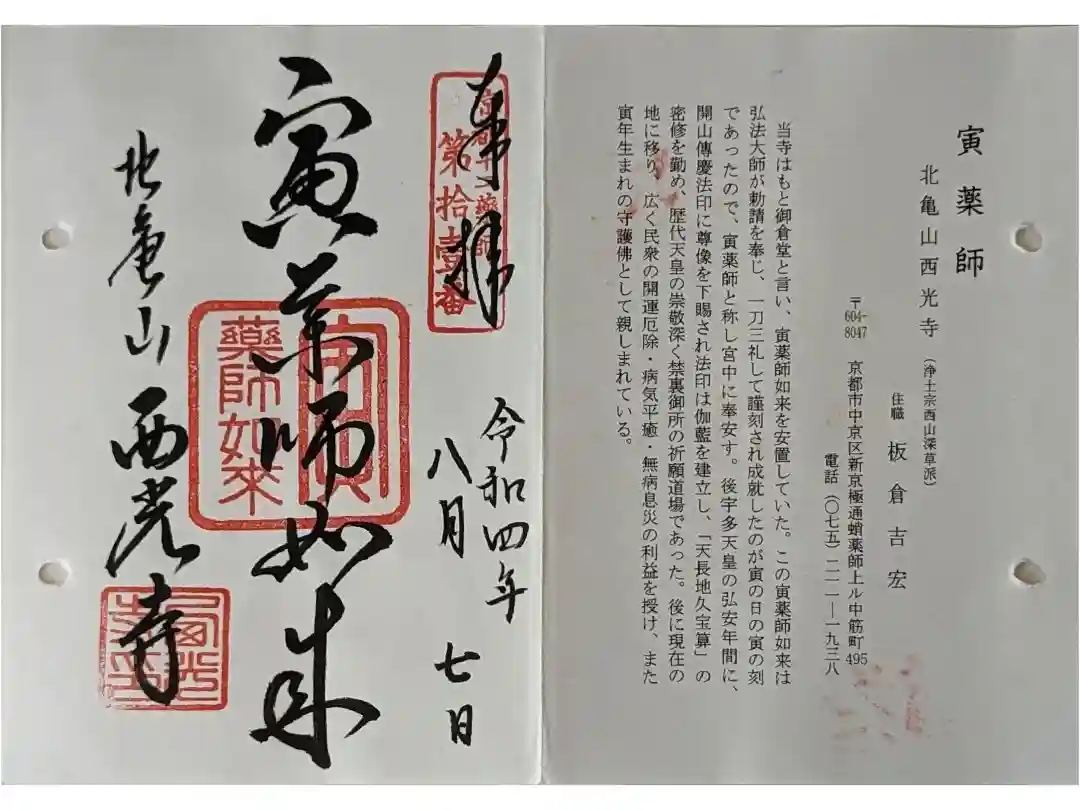 寅薬師
北亀山西光寺(浄土宗西山深草派)
住職 板倉吉宏
〒604-8047 京都市中京区新京極通蛸薬師上ル中筋町495
電話(〇七五)二一一―一九三八
当寺はもと御倉堂と言い、寅薬師如来を安置していた。この寅薬師如来は
弘法大師が勅請を奉じ、一刀三礼して謹刻され成就したのが寅の日の寅の刻
であったので、寅薬師と称し宮中に奉安す。後宇多天皇の弘安年間に、
開山傳慶法印に尊像を下賜され法印は伽藍を建立し、「天長地久宝算」の
密修を勤め、歴代天皇の崇敬深く禁裏御所の祈願道場であった。後に現在の
地に移り、広く民衆の開運厄除・病気平癒・無病息災の利益を授け、また
寅年生まれの守護佛として親しまれている。
奉拝
京都十二薬師
第拾壹番
令和四年
八月七日
寅薬師如来
寅
藥師如來
北亀山西光寺